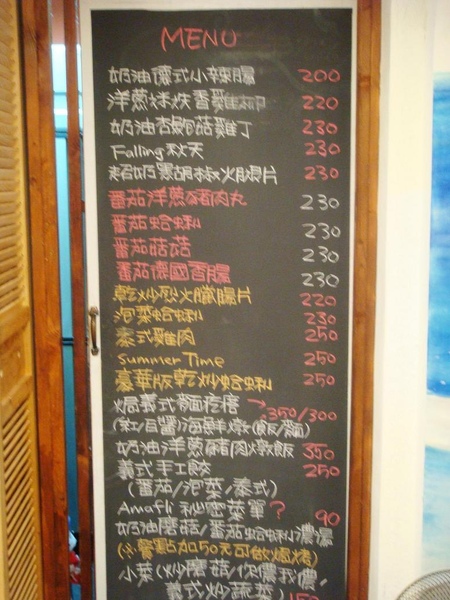 MENU
奶油德式小辣腸 200
洋蔥炑炔香雞柳 220
奶油杏鮑菇雞丁 230
Falling秋天 230
起奶黑胡椒火腿片 230
番茄洋蔥豬肉丸 230
番茄蛤蜊 230
番茄菇菇 230
番茄德國香腸 230
乾炒烈火臘腸片 220
泡菜蛤蜊 230
泰式雞肉 250
Summer Time 250
豪華版乾炒蛤蜊 250
焗義式麵疙瘩 → :350/300
(紅/白醬)海鮮燉(飯/麵)
奶油洋蔥豬肉燉飯 350
義式手工餃 250
(番茄/泡菜/泰式)
Amafli 秘密菜單?
奶油磨菇/番茄蛤蜊濃湯 90
(※餐點加50元可做焗烤)
小菜(炒磨菇/你儂我儂/
義式炒蔬菜) 150